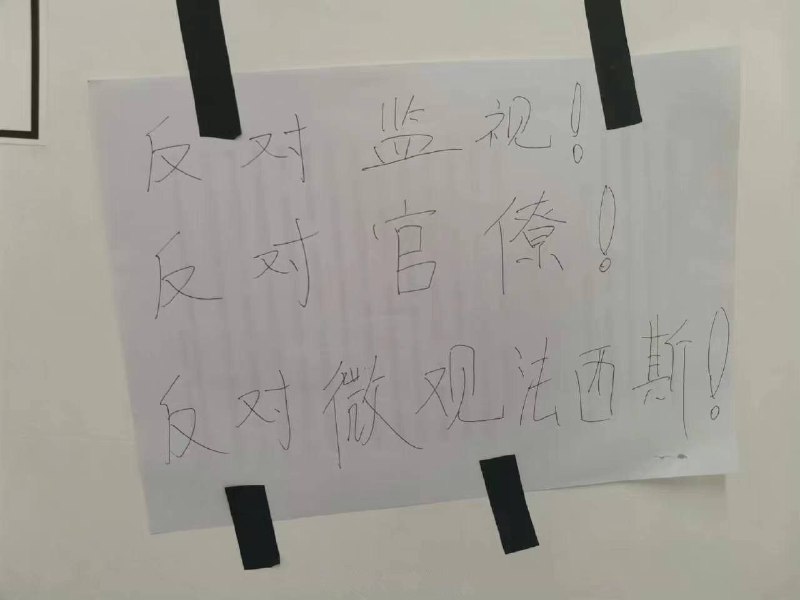 反对监视！
反对官僚！
反对微观法西斯！